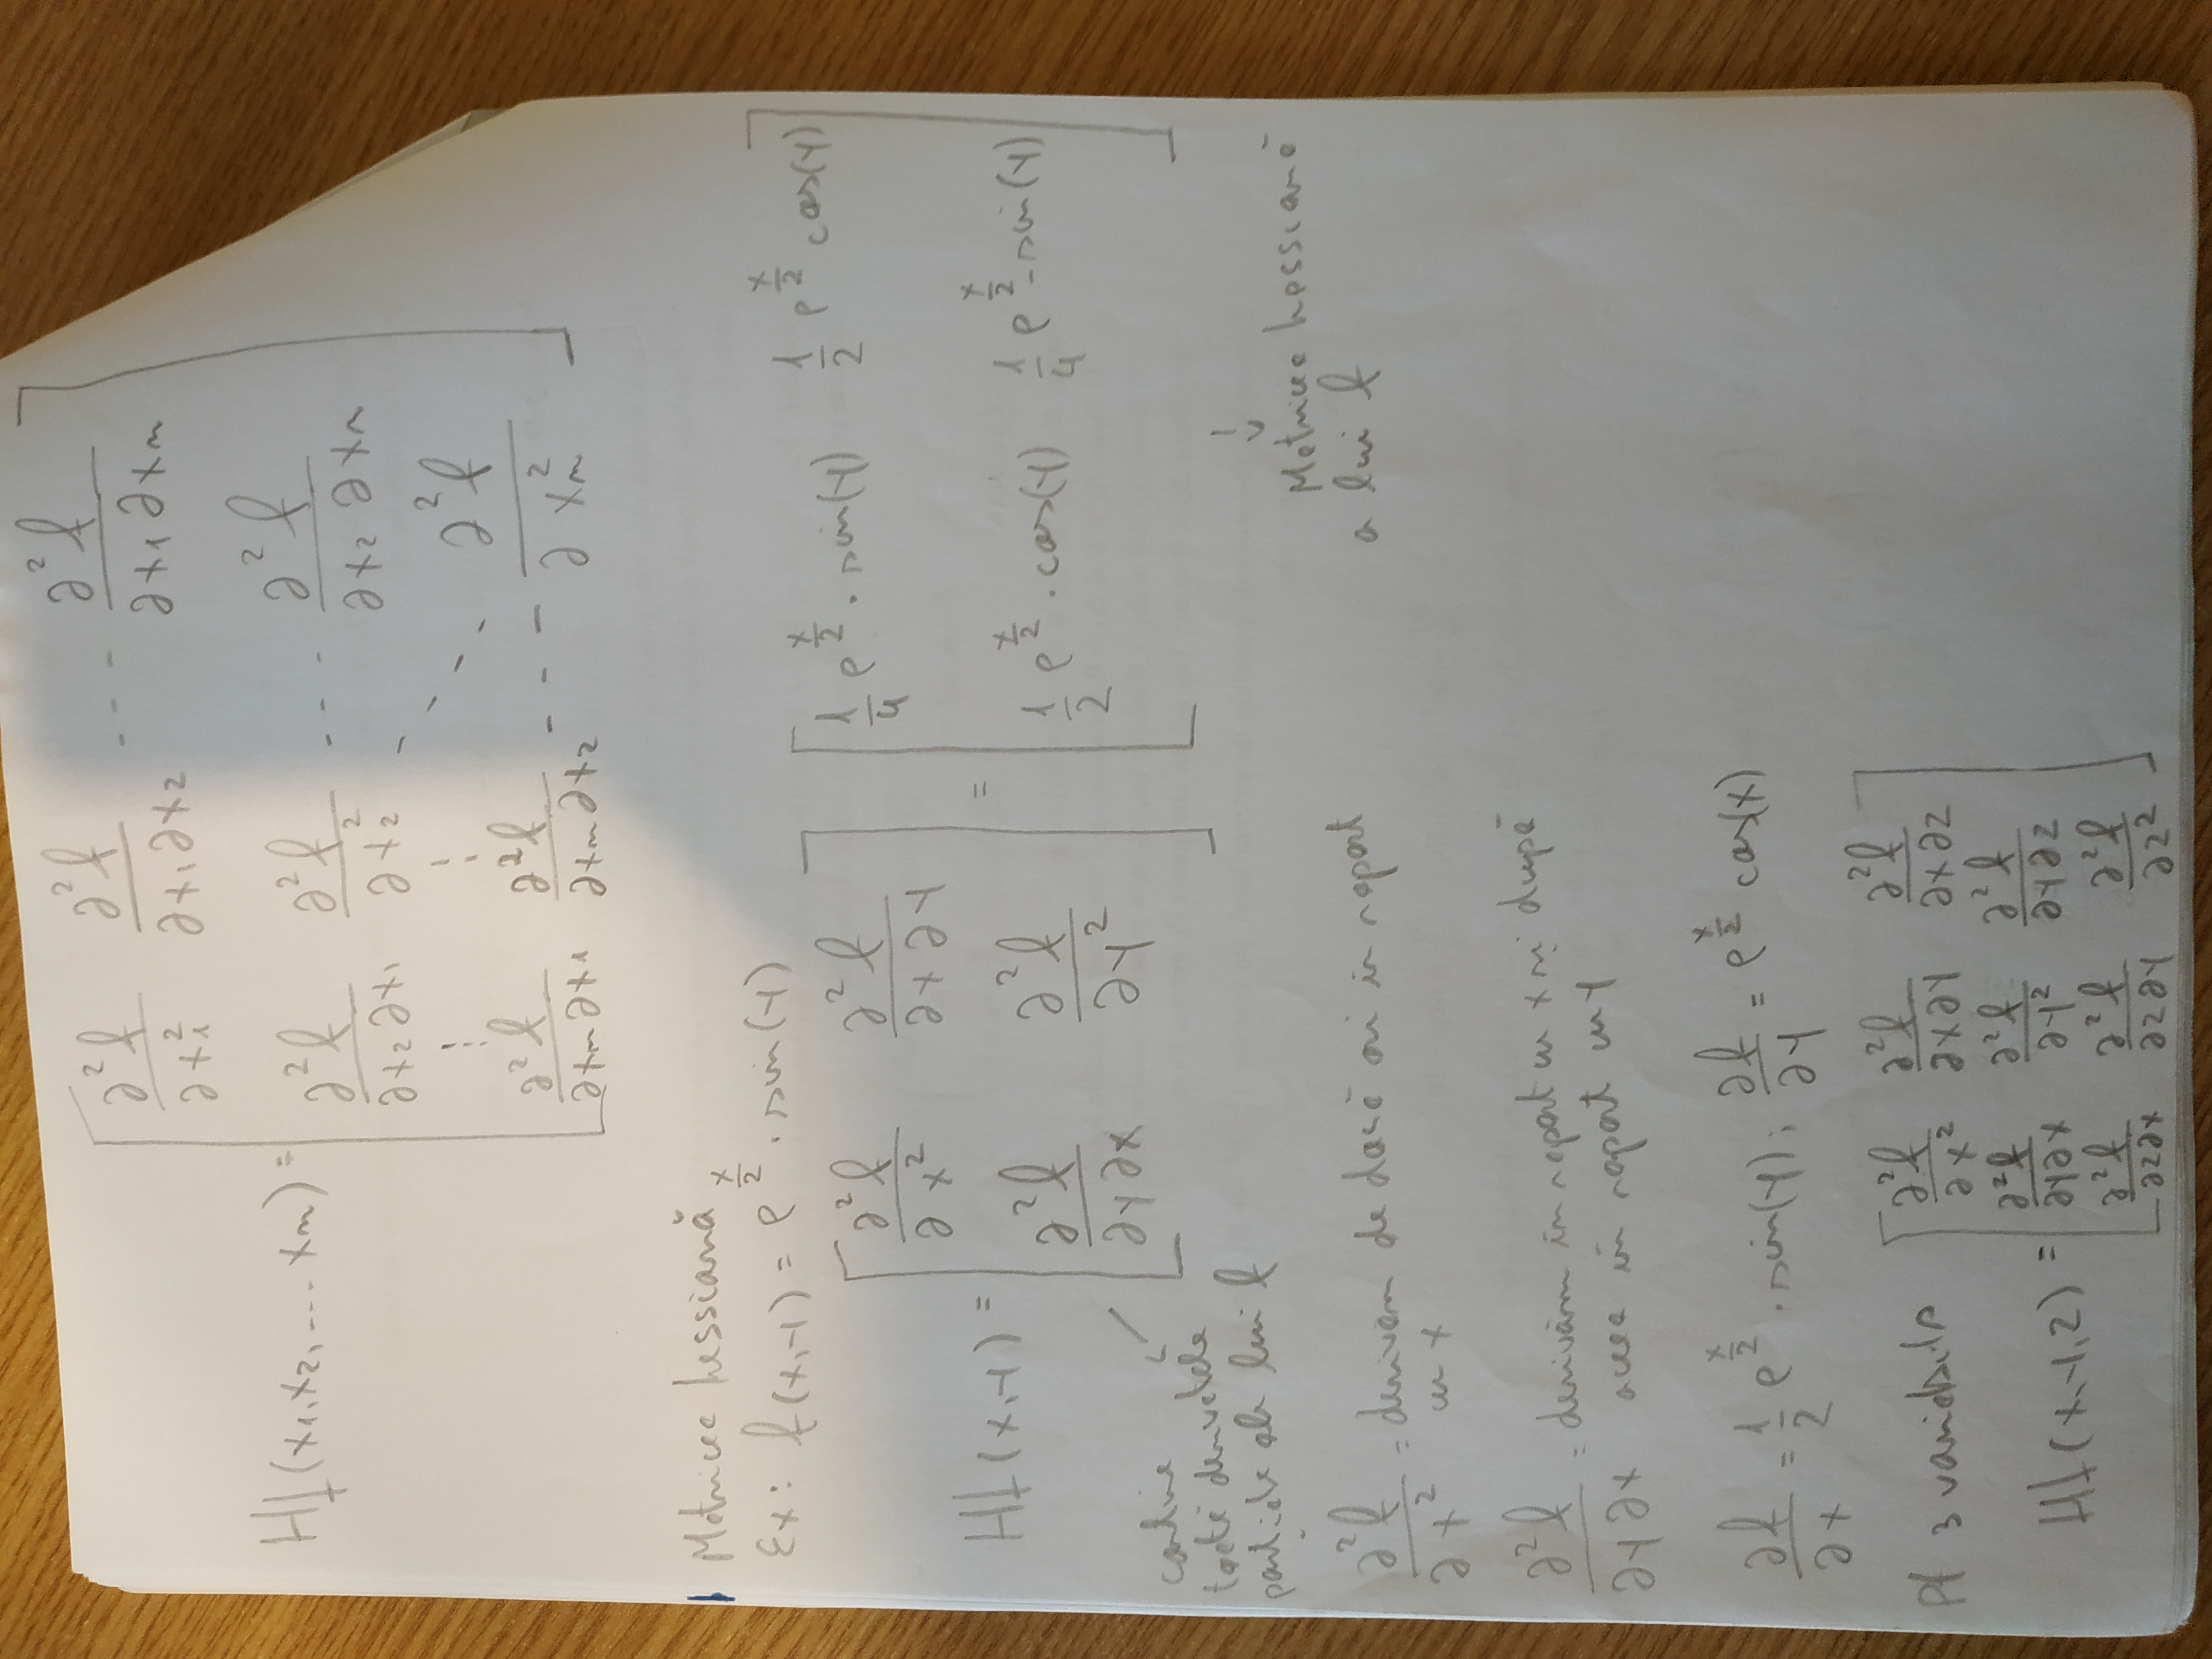 Hf(x₁,x₂,... xₙ) = [ ∂²f/∂x₁² ∂²f/∂x₁∂x₂ --- ∂²f/∂x₁∂xₙ
∂²f/∂x₂∂x₁ ∂²f/∂x₂² --- ∂²f/∂x₂∂xₙ
⋮ ⋮ ⋱
∂²f/∂xₙ∂x₁ ∂²f/∂xₙ∂x₂ --- ∂²f/∂xₙ² ]
Matricea hessiană
Ex: f(x,y) = e^(x/2) · sin(y)
Hf(x,y) = [ ∂²f/∂x² ∂²f/∂x∂y ] = [ 1/4 e^(x/2) · sin(y) 1/2 e^(x/2) cos(y) ]
[ ∂²f/∂y∂x ∂²f/∂y² ] [ 1/2 e^(x/2) · cos(y) 1/4 e^(x/2) - sin(y) ]
contine
toate derivatele
partiale ale lui f
Matricea hessiană
a lui f
∂²f/∂x² = derivăm de două ori în raport
cu x
∂²f/∂y∂x = derivăm în raport cu x și după
aceea în raport cu y
∂f/∂x = 1/2 e^(x/2) · sin(y); ∂f/∂y = e^(x/2) cos(x)
Pt 3 variabile
Hf(x,y,z) = [ ∂²f/∂x² ∂²f/∂x∂y ∂²f/∂x∂z
∂²f/∂y∂x ∂²f/∂y² ∂²f/∂y∂z
∂²f/∂z∂x ∂²f/∂z∂y ∂²f/∂z² ]